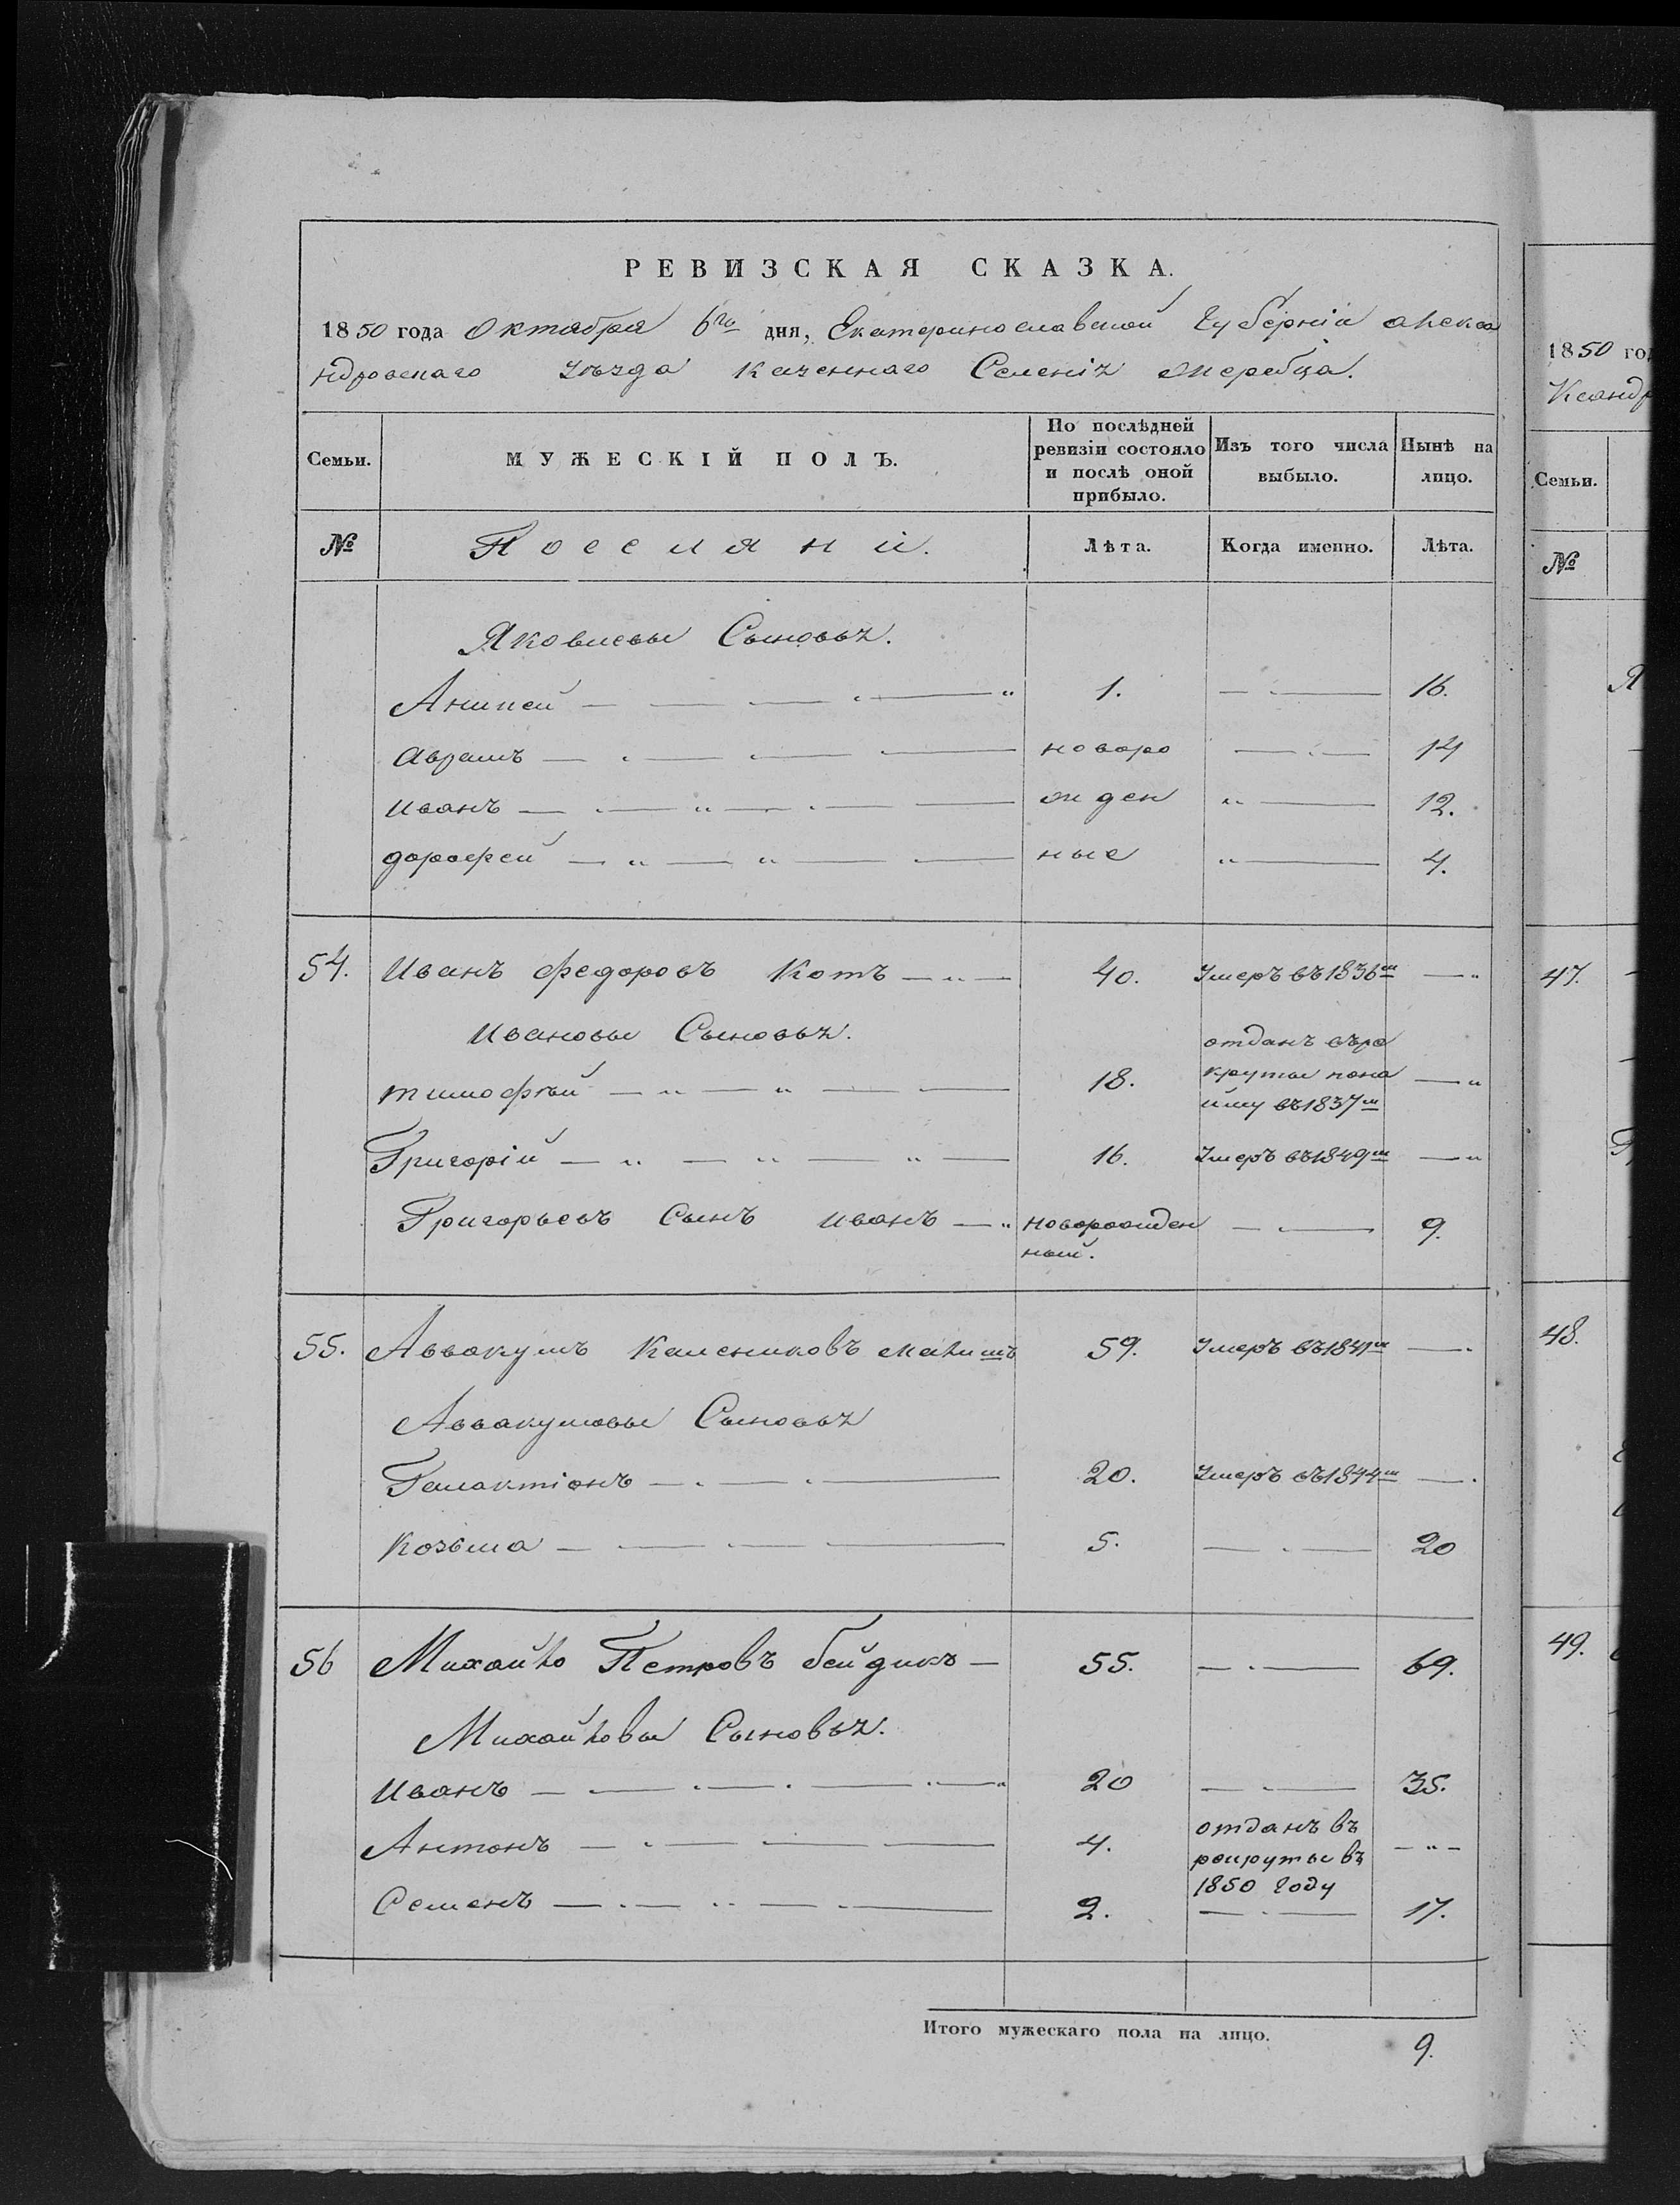 РЕВИЗСКАЯ СКАЗКА.
1850 года Октября 6го дня, Екатеринославской Губерніи Алекса
ндровскаго Уѣзда Казеннаго Селенія Жеребца.
Семьи.
МУЖЕСКІЙ ПОЛЪ.
По послѣдней ревизіи состояло и послѣ оной прибыло.
Изъ того числа выбыло.
Нынѣ на лицо.
№
Поселяни.
Лѣта.
Когда именно.
Лѣта.
Яковлевы Сыновья.
1. 16.
Аврамъ новоро 14
Иванъ жден 12.
дорофей ные 4.
54. Иванъ Федоровъ Котъ 40. Умеръ въ 1836м
Ивановы Сыновья.
отданъ въре
тимофѣй 18. круты пона
йму въ 1837м
Григорій 16. Умеръ въ 1849м
Григорьевъ Сынъ иванъ новорожден 9.
ный.
55. Аввакумъ Калениковъ 59. Умеръ въ 1841м
Аввакумовы Сыновья
Галактіонъ 20. Умеръ въ 1844м
Козьма 5. 20
56 Михайло Петровъ бейдикъ 55. 69.
Михайловы Сыновья.
Иванъ 20 35.
отданъ въ
Антонъ 4. рекруты въ
1850 Году
Семенъ 2. 17.
Итого мужескаго пола на лицо. 9.
1850 го
ксандр
Семьи.
№
Я
47.
48.
49.